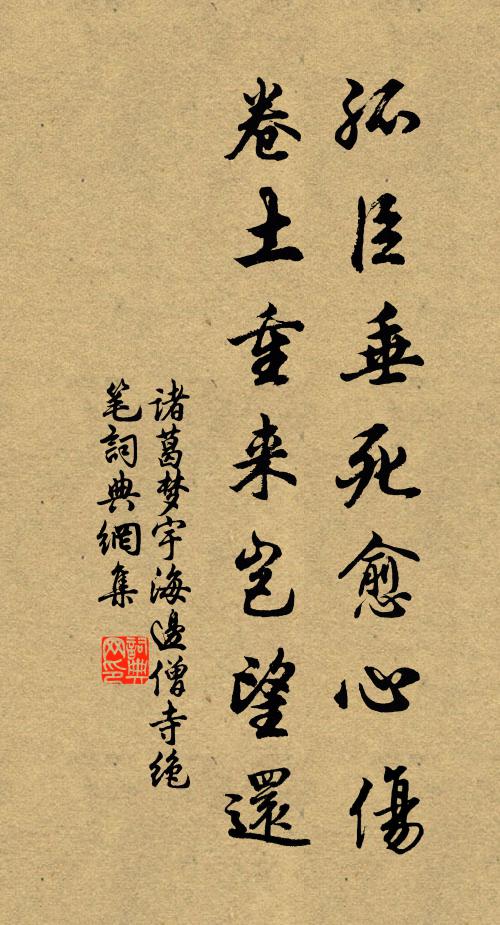 孤臣垂死愈心傷
卷土重来豈望還
诸葛梦宇海邊僧寺绝
笔詞典網集
詞典网印